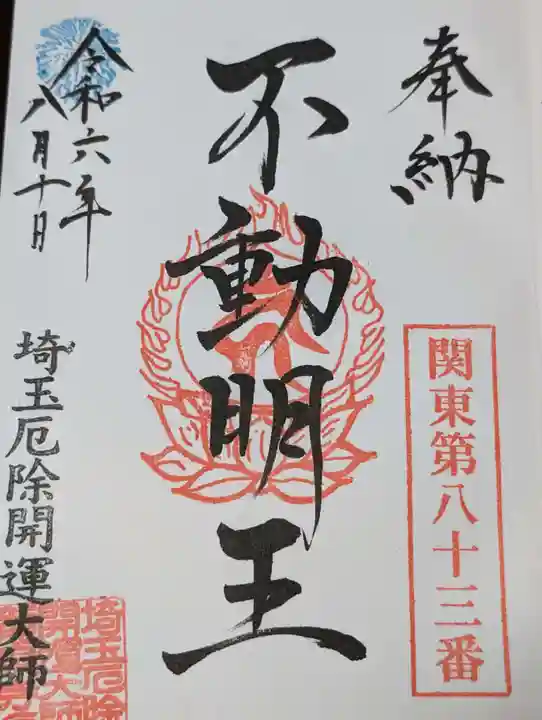 奉納
関東第八十三番
不動明王
令和六年
八月十日
埼玉厄除開運大師
埼玉厄除
開運大師